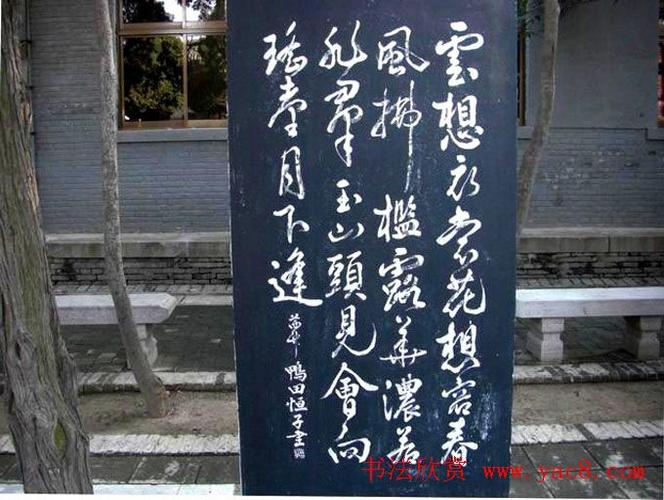 雲想衣裳花想容春
風拂檻露華濃若
非群玉山頭見會向
瑤臺月下逢
鴨田恒子書
书法欣赏 www.yac8.com